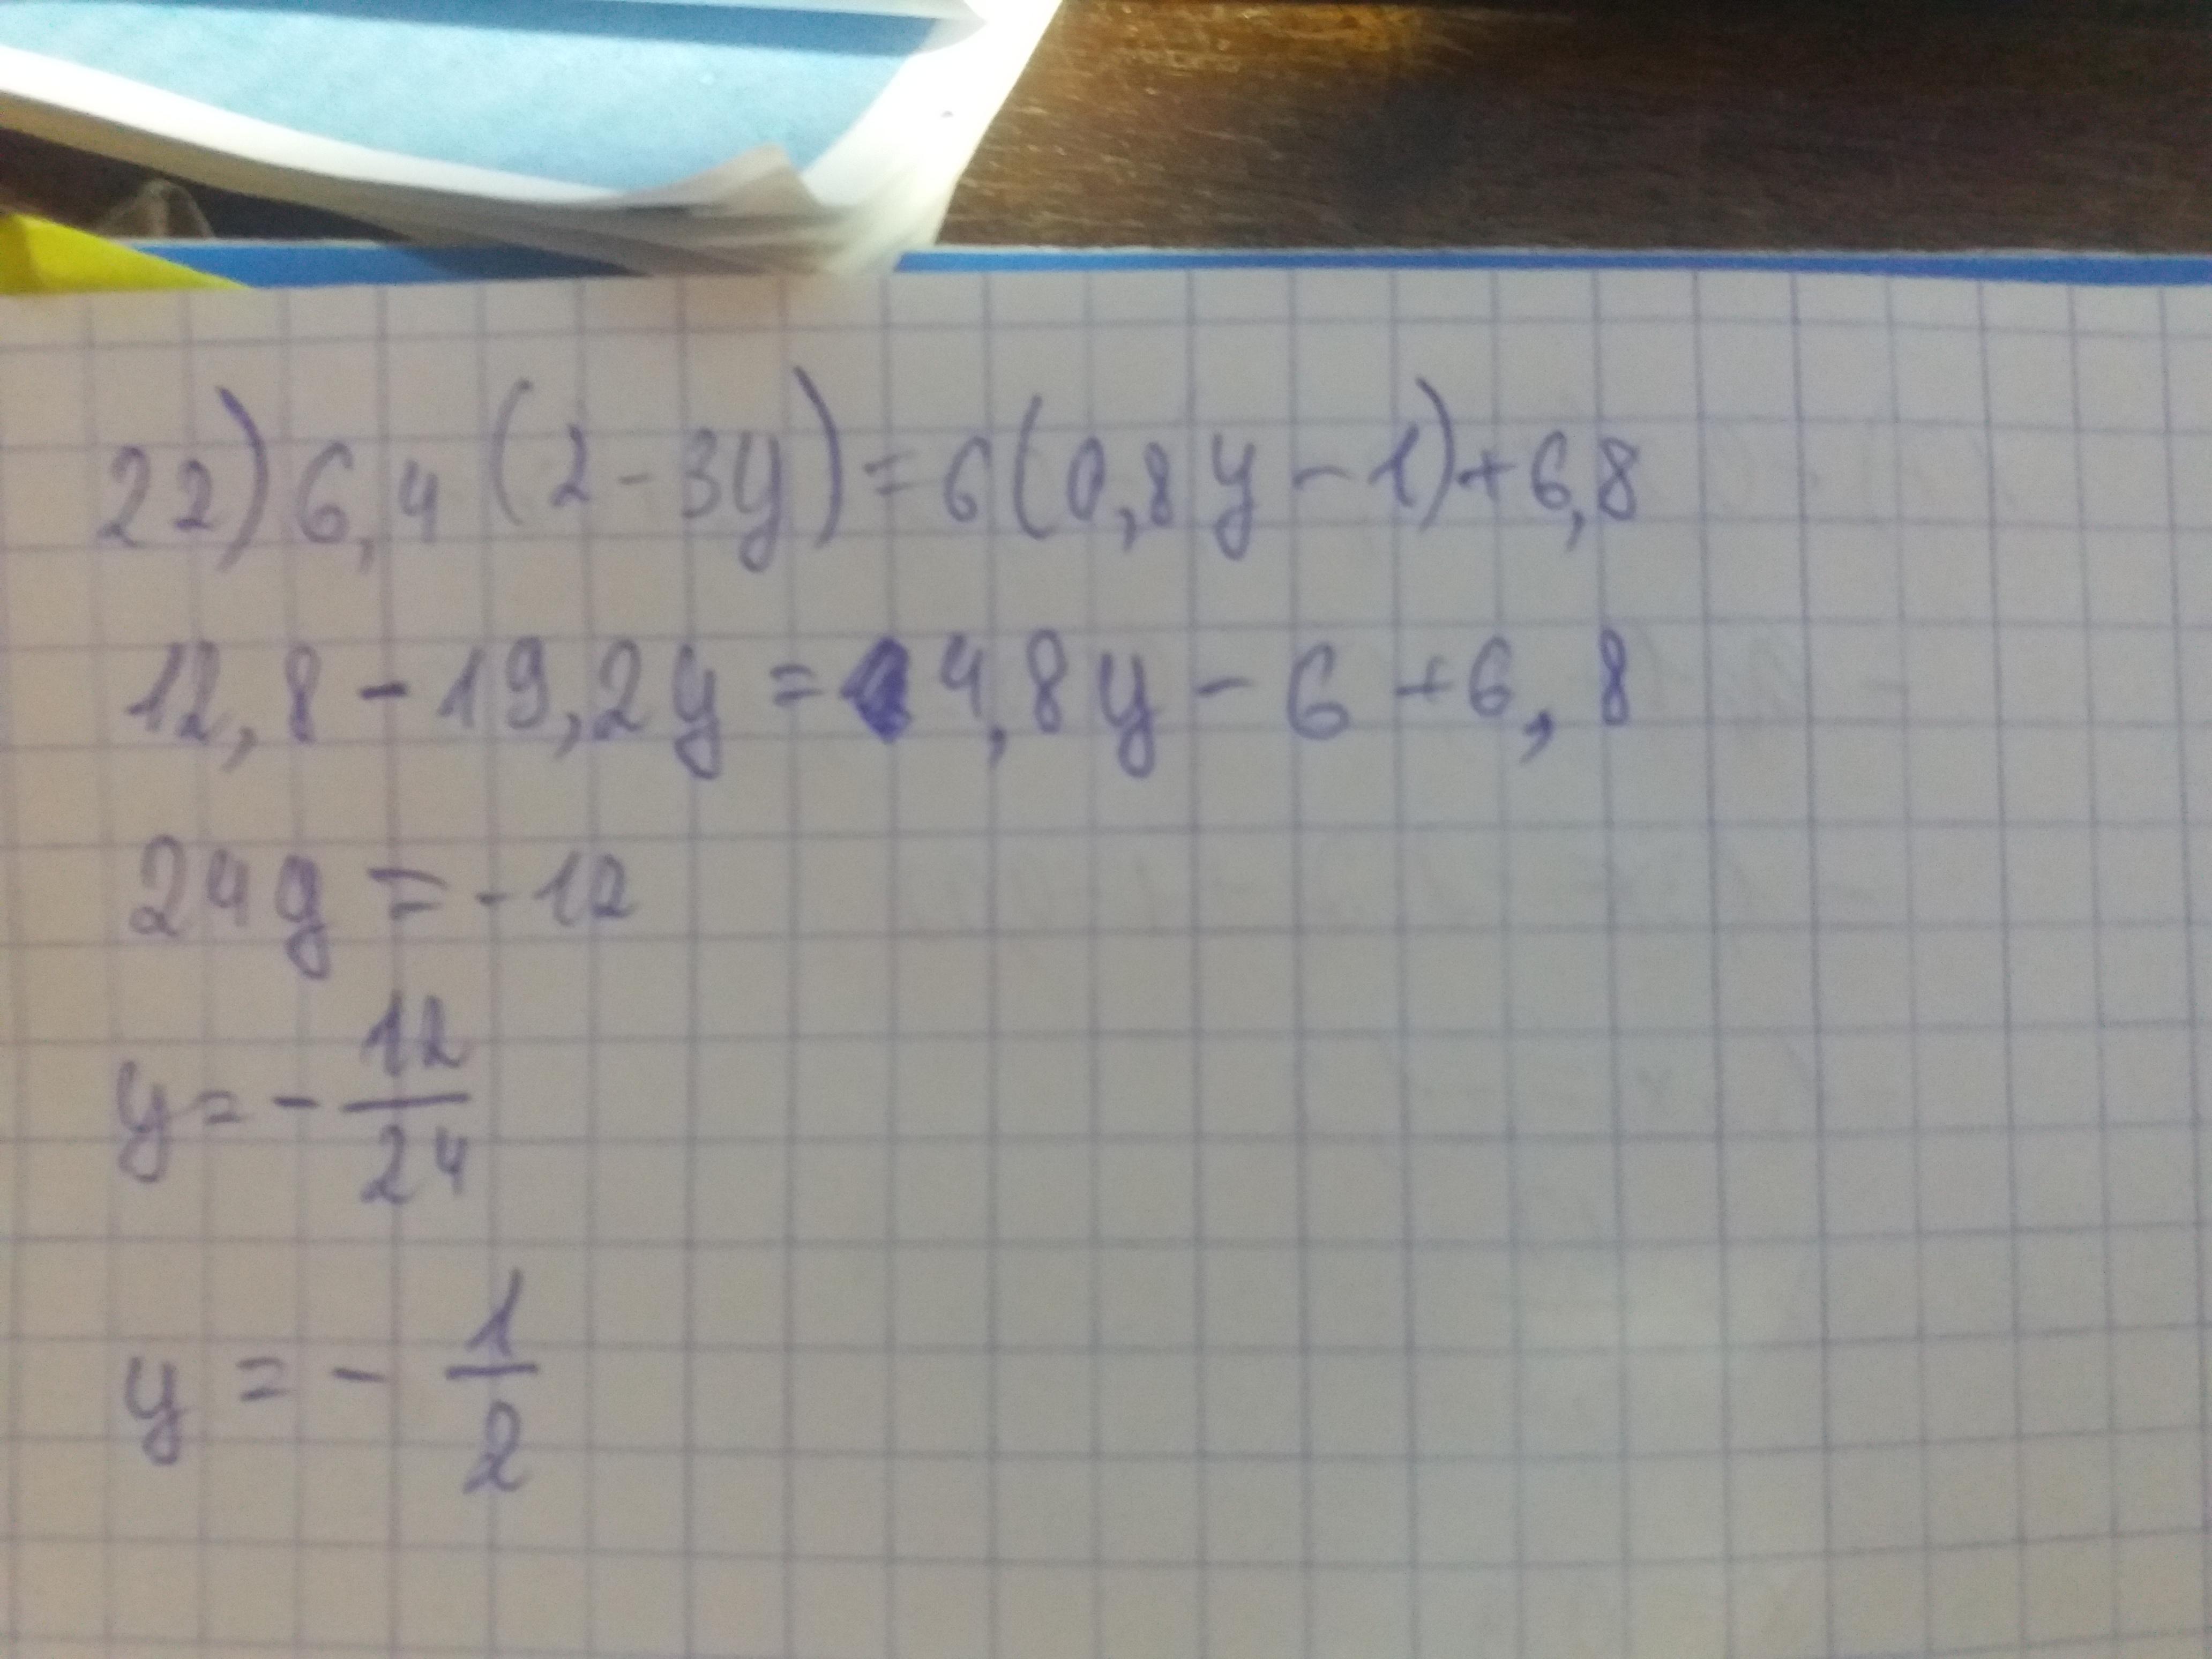 22) 6,4 (2 - 3y) = 6(0,8y - 1) + 6,8
12,8 - 19,2y = 4,8y - 6 + 6,8
24y = -12
y = - 12/24
y = - 1/2